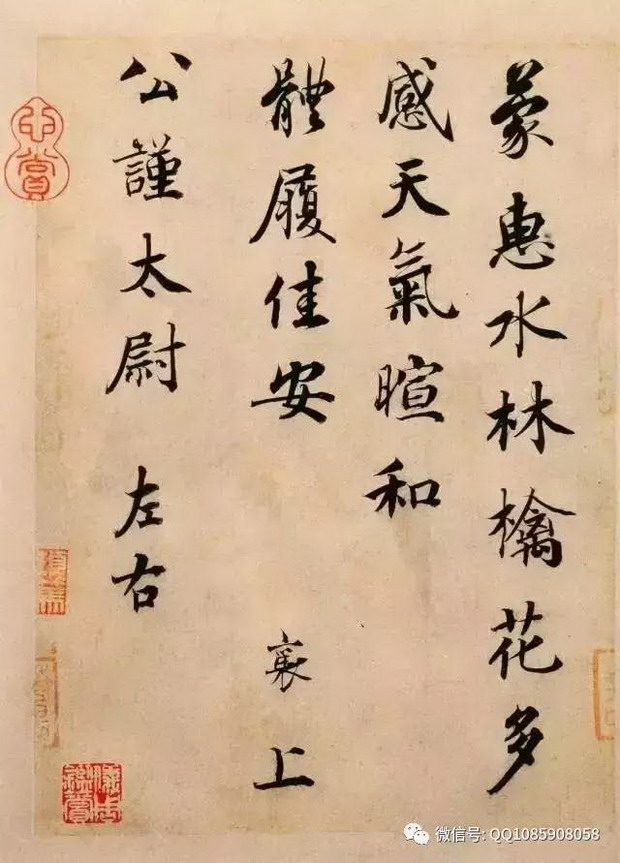 蒙惠水林檎花多
感天氣暄和
體履佳安
襄上
公謹太尉 左右
微信号: QQ1085908058